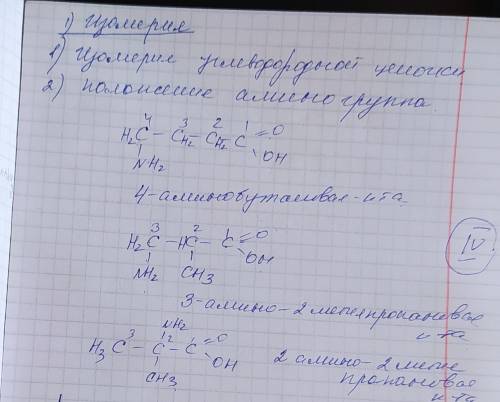 1) Изомерия
1) Изомерия углеводородной цепочки
2) положение аминогруппа.
4 3 2 1
H₂C – CH₂ – CH₂ – C =O
NH₂ OH
4-аминобутановая к-та
3 2 1
H₂C – HC – C =O
NH₂ CH₃ OH
IV
3-амино-2 метилпропановая
к-та
NH₂
3 2 1
H₃C – C – C =O
CH₃ OH
2 амино-2 метил
пропановая
к-та